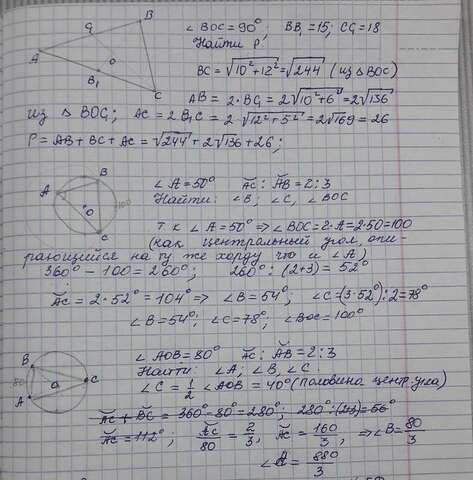 ∠BOC = 90°, BB₁ = 15; CG = 18
Найти P
BC = √10² + 12² = √244 (из ΔBOC)
AB = 2·BG = 2√10² + 6² = 2√136
Из ΔBOG; AC = 2B₁C = 2√12² + 5² = 2√169 = 26
P = AB + BC + AC = √244 + 2√136 + 26;
A
G
B
B₁
O
C
∠A = 50° AC : AB = 2 : 3
Найти ∠B, ∠C, ∠BOC
т.к ∠A = 50° ⇒ ∠BOC = 2·∠A = 2·50 = 100
(как центральный угол опи-
рающийся на ту же хорду что и ∠A)
360° - 100 = 260°; 260° : (2+3) = 52°
AC = 2·52° = 104° ⇒ ∠B = 54°; ∠C = (3·52) : 2 = 78°
∠B = 54°, ∠C = 78°, ∠BOC = 100°
A
B
O
C
100°
∠AOB = 80° AC : AB = 2 : 3
Найти ∠A, ∠B, ∠C
∠C = 1/2 ∠AOB = 40° (Половине центр угла)
AC + BC = 360° - 80° = 280°,
AC = 112°; AC/80 = 2/3, AC = 160/3, ⇒ ∠B = 80/3
880/3
A
B
O
C
80°